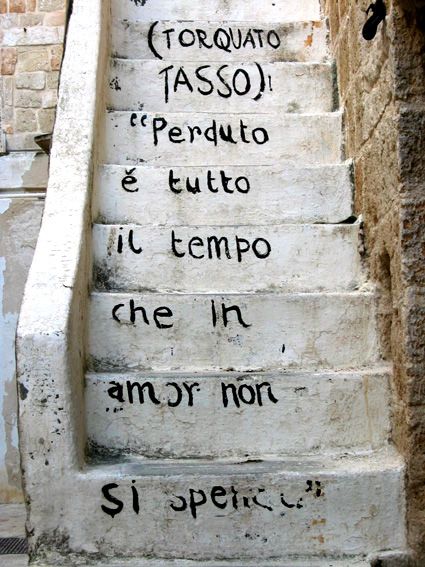 (TORQUATO
TASSO):
“Perduto
è tutto
il tempo
che in
amor non
si spende”